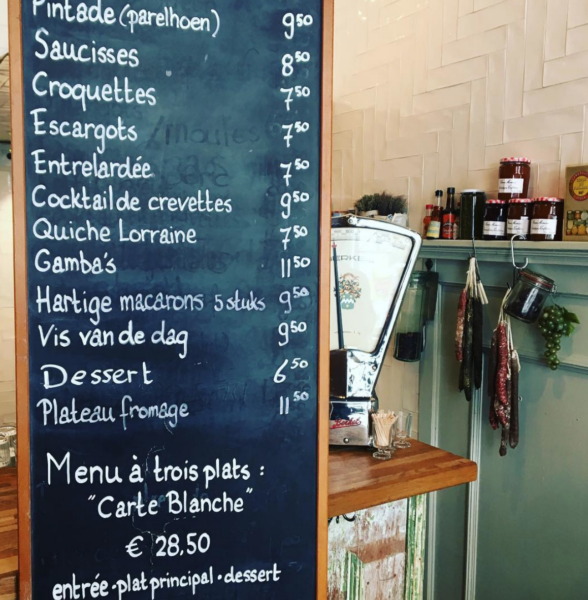 Pintade (parelhoen) 9⁵⁰
Saucisses 8⁵⁰
Croquettes 7⁵⁰
Escargots 7⁵⁰
Entrelardée 7⁵⁰
Cocktail de crevettes 9⁵⁰
Quiche Lorraine 7⁵⁰
Gamba's 11⁵⁰
Hartige macarons 5 stuks 9⁵⁰
Vis van de dag 9⁵⁰
Dessert 6⁵⁰
Plateau fromage 11⁵⁰
Menu à trois plats :
"Carte Blanche"
€ 28,50
entrée · plat principal · dessert